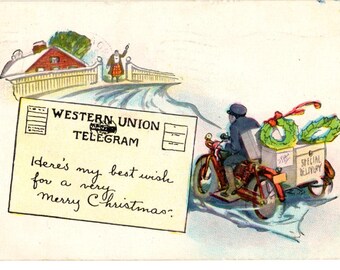 WESTERN UNION
TELEGRAM
Here's my best wish
for a very
Merry Christmas.
SPECIAL
DELIVERY